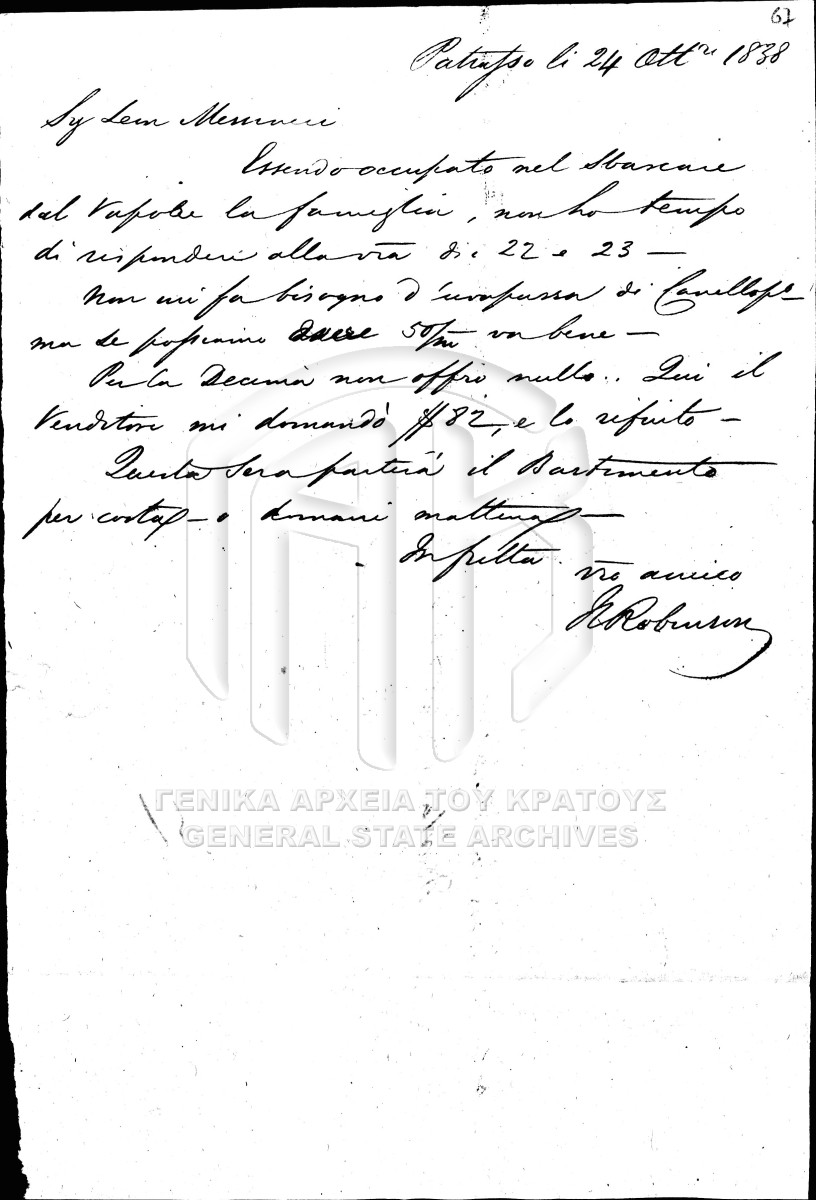 67
Patrasso li 24 Ottre 1838
Sig Leon Messinesi
Essendo occupato nel sbarcare
dal Vapore la famiglia, non ho tempo
di rispondere alla vra di 22 e 23 —
Non mi fa bisogno d'uvapassa di Canellopo
ma se possiamo 50/m va bene —
Per la Decima non offro nulla.. Qui il
Venditore mi domandò $ 82, e lo rifiuto —
Questa Sera partirà il Bastimento
per costa — o domani mattina —
In fretta vro amico
Robinson
ΓΕΝΙΚΑ ΑΡΧΕΙΑ ΤΟΥ ΚΡΑΤΟΥΣ
GENERAL STATE ARCHIVES